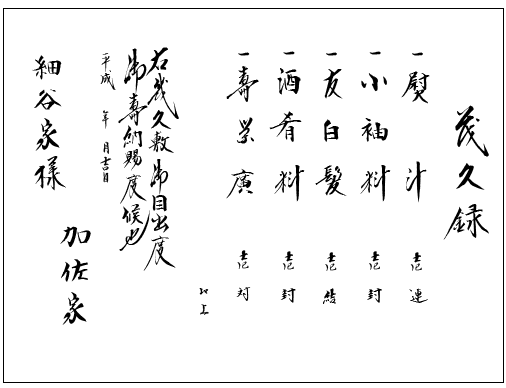 茂久録
一 熨斗 壱連
一 小袖料 壱封
一 友白髪 壱結
一 酒肴料 壱封
一 壽栄廣 壱対
以上
右幾久敷御目出度
御壽納賜度候也
平成 年 月吉日
加佐家
細谷家様